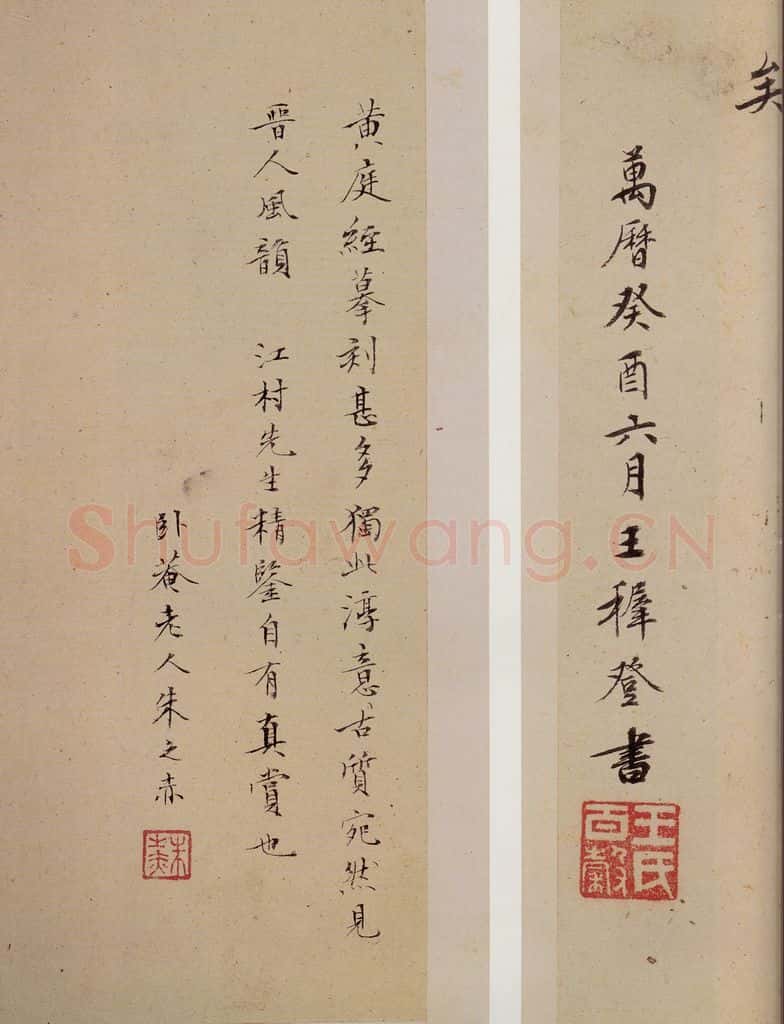 矣
萬曆癸酉六月王穉登書
王氏百穀
黄庭經摹刻甚多獨此淳意古質宛然見
晉人風韻 江村先生精鑒自有真賞也
卧菴老人朱之赤
Shufawang.CN